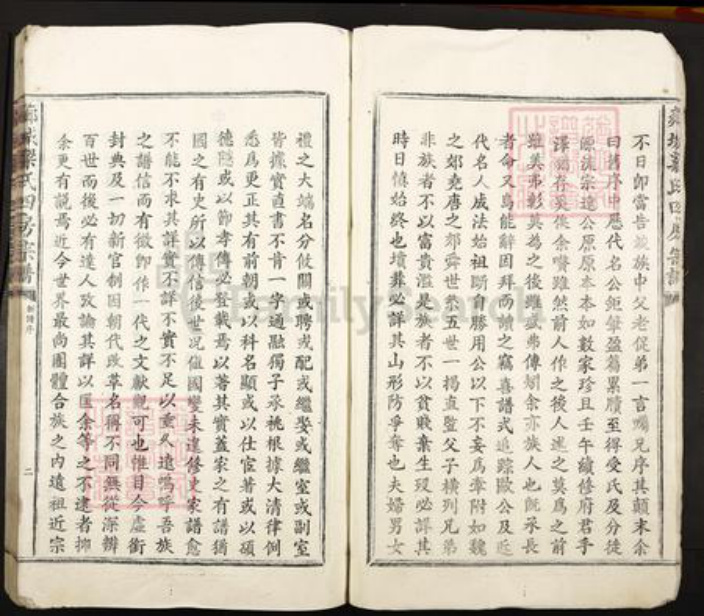 不日卽當告竣族中父老促弟一言囑兄序其顛末余
曰舊序中歷代名公鉅肇盈篇累牘至得受氏及分徒
源流宗遠公原原本本如數家珍且壬午續修府君手
澤猶存奚俟余贅雖然前人作之後人述之莫為之前
雖美弗彰莫為之後雖盛弗傳矧余亦族人也旣承長
者命又烏能辭因拜而讀之竊喜譜式追踪歐公及近
代名人成法始祖斷自勝用公以下不妄為牽附如魏
之郊堯唐之郊舜世系五世一揭直豎父子橫列兄弟
非族者不以富貴濫是族者不以貧賤棄生歿必詳其
時日慎始終也墳葬必詳其山形防爭奪也夫婦男女
禮之大端名分攸關或聘或配或繼娶或繼室或副室
皆據實直書不肯一字通融獨子承祧根據大清律例
悉為更正其有前朝或以科名顯或以仕宦著或以碩
德隱或以節孝傳必登載焉以著其實蓋家之有譜猶
國之有史所以傳信後世況值國變未遑修史家譜愈
不能不求其詳實不詳不實不足以垂久遠嗚呼吾族
之譜信而有徵卽作一代之文獻觀可也惟目今虛銜
封典及一切新官制因朝代改革名稱不同無從深辨
百世而後必有達人攷論其詳以匡余等之不逮者抑
余更有說焉近今世界最尚團體合族之內遠祖近宗
氏四房宗譜
新譜序
二
FamilySearch